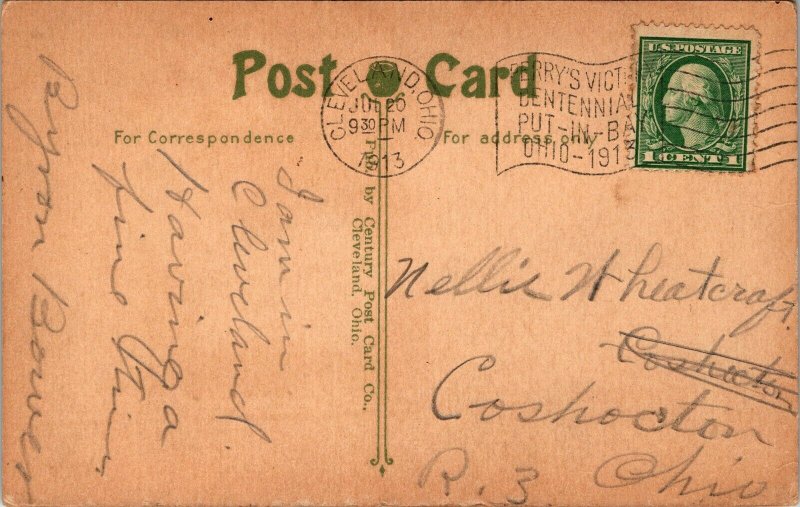 Post Card
For Correspondence
For address only
CLEVELAND, OHIO
JUL 26
9 30 PM
1913
PERRY'S VICT
CENTENNIA
PUT-IN-BA
OHIO-1913
U.S. POSTAGE
1 CENT 1
Pub. by Century Post Card Co.,
Cleveland, Ohio.
I am in
Cleveland.
Having a
fine time
Byron Bower
Nellie Wheatcraft.
Coshocton
Coshocton
R. 3. Ohio